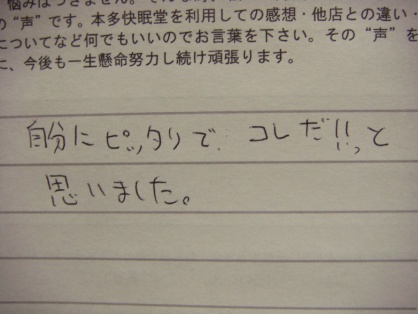 悩みはつきません。
の“声”です。本多快眠堂を利用しての感想・他店との違い・
についてなど何でもいいのでお言葉を下さい。その“声”を
に、今後も一生懸命努力し続け頑張ります。
自分にピッタリで コレだ!!っと
思いました。